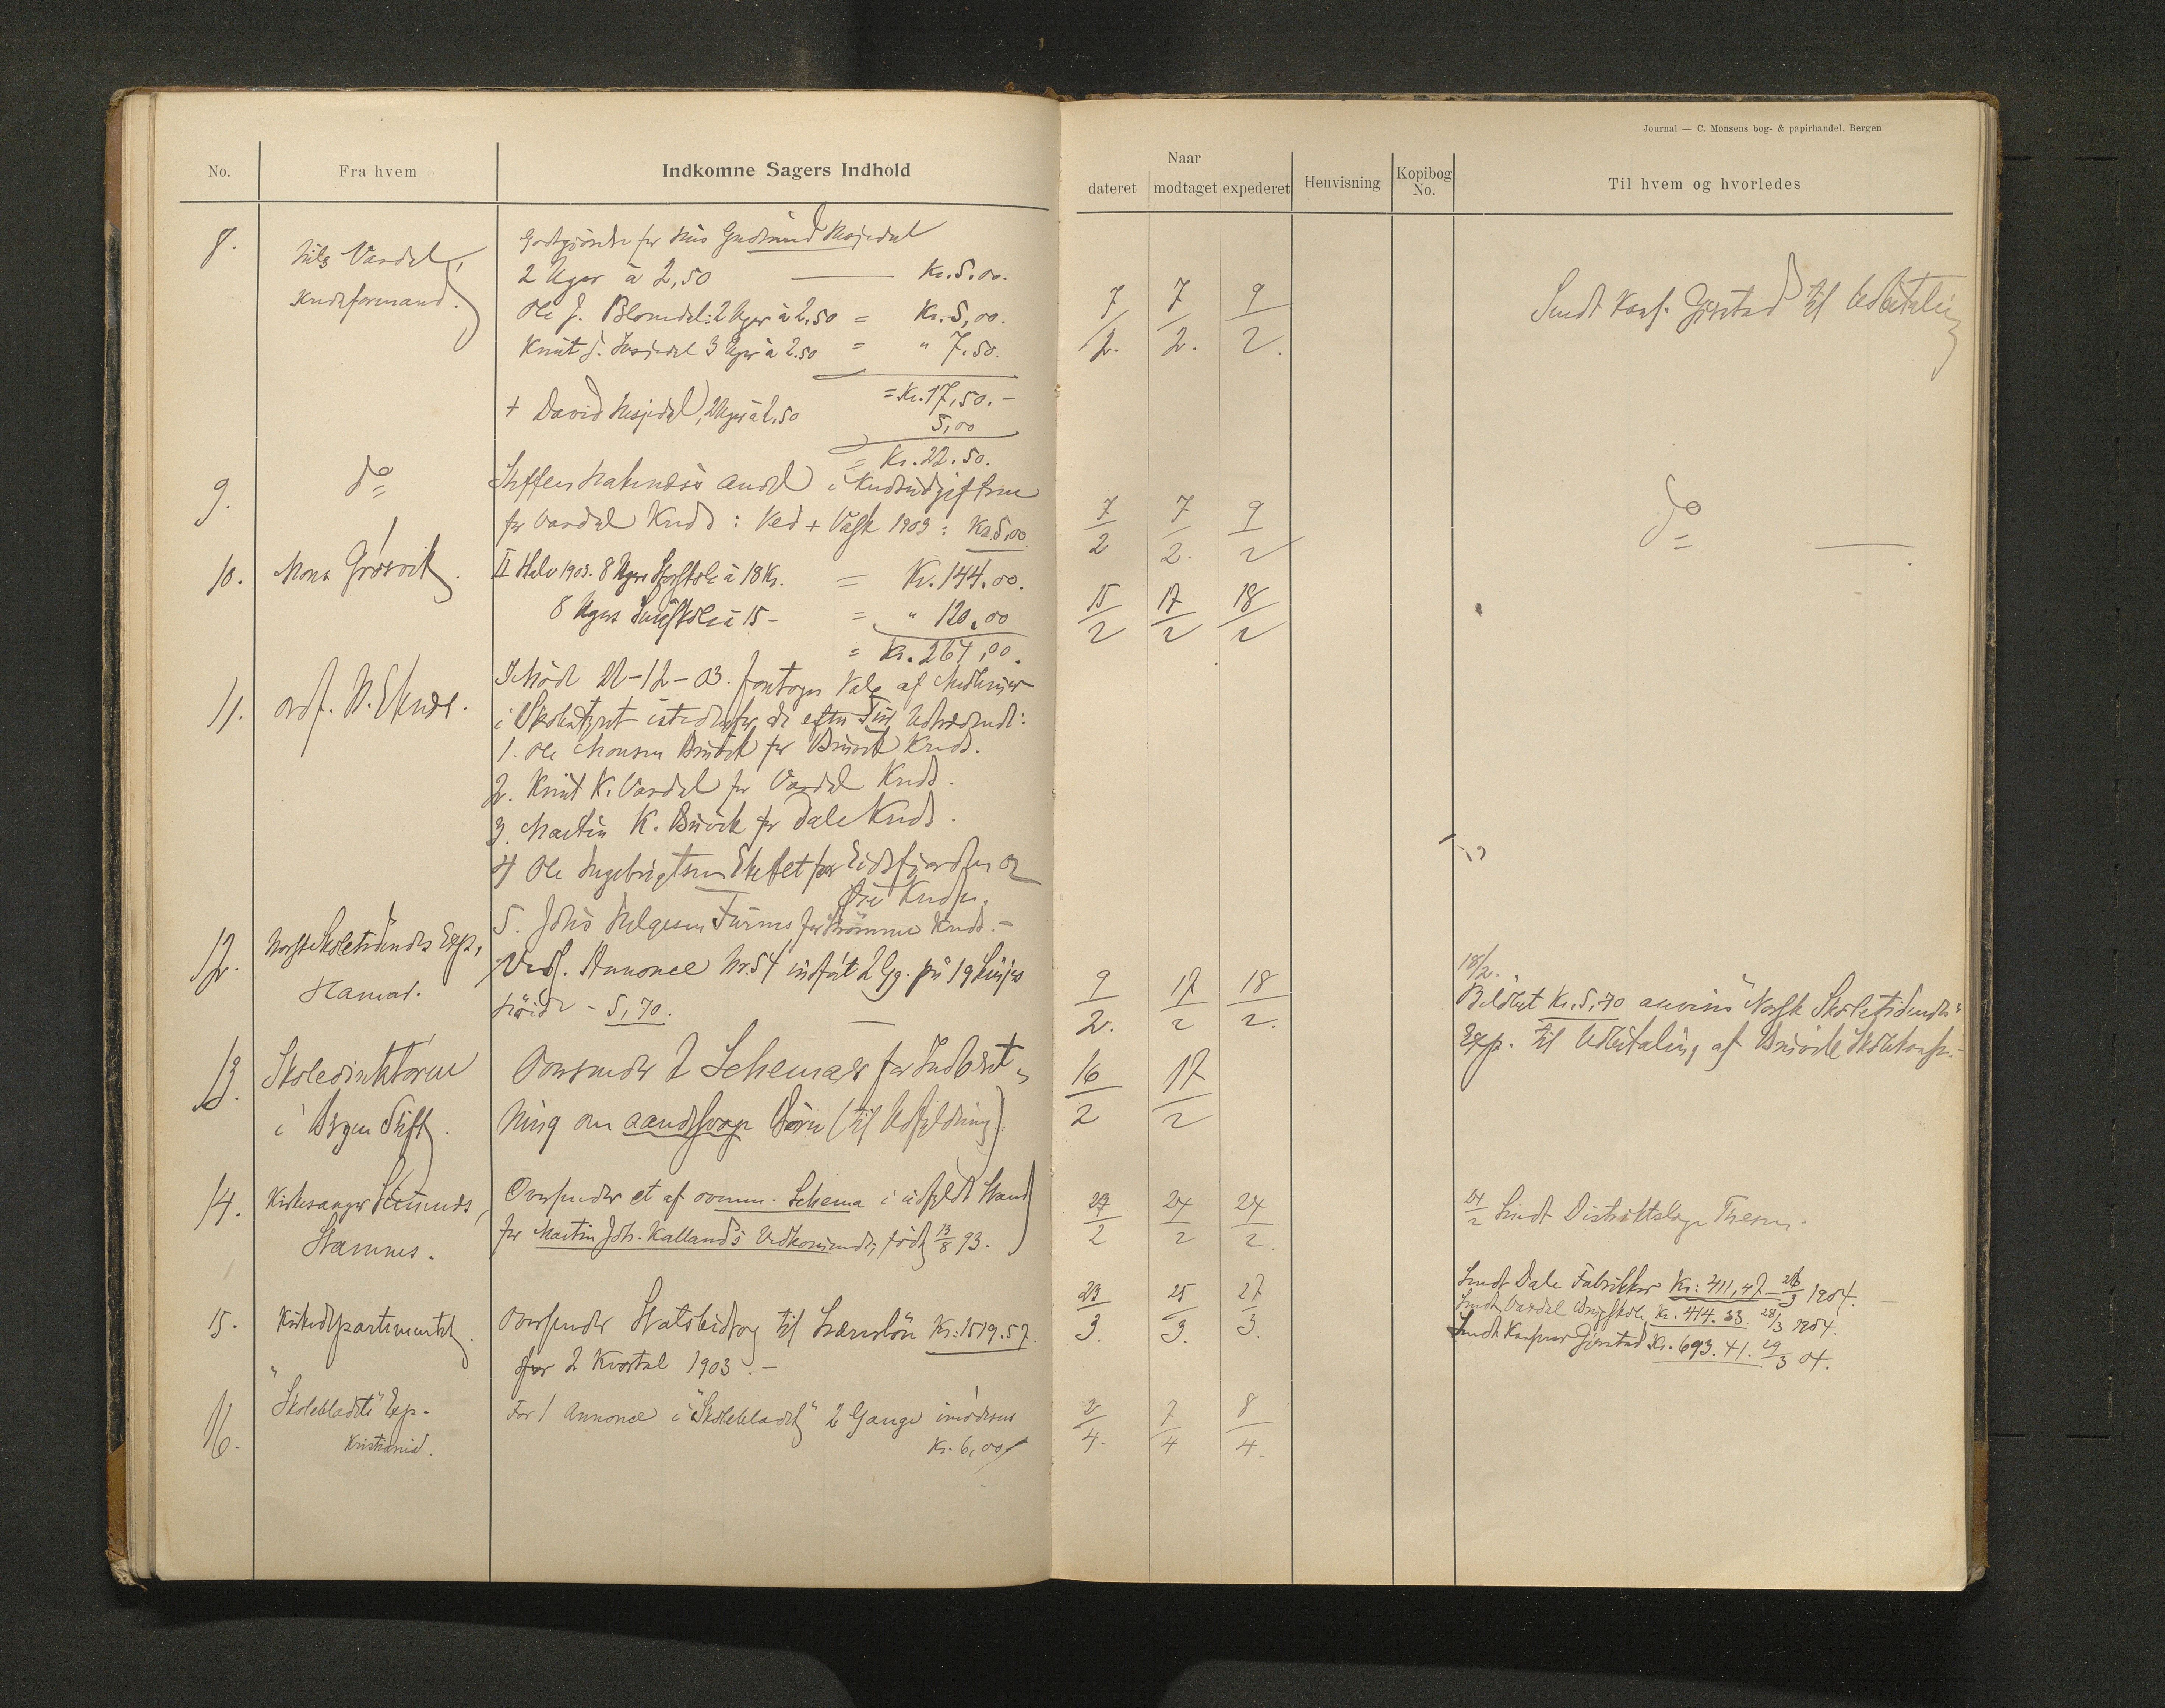 Journal — C. Monsens bog- & papirhandel, Bergen
No.
Fra hvem
Indkomne Sagers Indhold
Naar
dateret modtaget expederet
Henvisning
Kopibog No.
Til hvem og hvorledes
8.
Nils Vardal,
Kredsformand.
Godtgjörelse for Hus Gudmund
2 Uger à 2,50 — Kr. 5.00.
Ole J. Blomdal: 2 Uger à 2,50 = Kr. 5,00.
Knut J. 3 Uger à 2.50 = " 7.50.
= Kr. 17,50.-
+ David Nesjedal, 2 Uger à 2,50
5,00
= Kr. 22.50.
7/2. 7/2. 9/2.
Sendt Kass. Gjerstad til Udbetaling
9.
do
Steffen andel i Kredsudgifterne
for Vardal Kreds: Ved + Vask 1903: Kr. 5,00.
7/2 7/2. 9/2
do —
10.
Mons Grøsvik.
II Halv 1903. 8 Uger à 18 Kr. = Kr. 144.00.
8 Uger à 15 - = " 120,00
= Kr. 264,00.
15/2 17/2 18/2
11.
ordf. N. Eknes.
I Möde 22-12-03. foretoges Valg af Medlemmer
i Skolestyret istedenfor de efter Tur Udtrædende:
1. Ole Monsen Bruvik for Bruvik Kreds.
2. Knut K. Vardal for Vardal Kreds.
3. Martin K. Bruvik for Dale Kreds.
4 Ole Ingebrigtsen for Eidsfjorden og
Kredse.
5. Johs Helgesen Furnes for Strömme Kreds.-
12.
Norsk Skoletidendes Exp.,
Hamar.
Vedl. Annonce Nr. 54 indført 2 Gg. på 19 Linjes
höide - 5,70. —
9/2. 17/2 18/2.
18/2.
Belöbet Kr. 5,70 anvises "Norsk Skoletidendes"
Exp. til Udbetaling af Bruvik Skolekasse.-
13.
Skoledirektören
i Bergen Stift.
Oversender 2 Schemaer for Indberet-
ning om aandssvage Börn (til Udfyldning).
16/2 17/2
14.
Kirkesanger
Stamnes.
Oversender et af ovenn. Schema i udfyldt Stand
for Martin Joh. Kallands Vedkommende, född 13/8 93.
27/2 24/2 24/2.
24/2 Sendt Distriktslæge
15.
Kirkedepartementet.
Oversender Statsbidrag til Lærerlön Kr. 1519.57.
for 2 Kvartal 1903.-
23/3. 25/3. 27/3.
Sendt Dale Fabrikker Kr: 411,47 - 28/3 1904. —
Sendt Vardal Kr. 414.33. 28/3 1904.
Sendt Kasserer Gjerstad Kr. 693.41. 29/3 04.
16.
"Skolebladets" Exp.
Kristiania.
For 1 Annonce i "Skolebladet" 2 Gange
Kr. 6,00
2/4. 7/4 8/4.